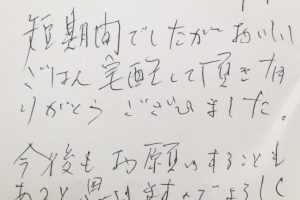 短期間でしたが おいしい
ごはん宅配して頂きあ
りがとう ございました。
今後も お願いすることも
あると思いますのでよろしく